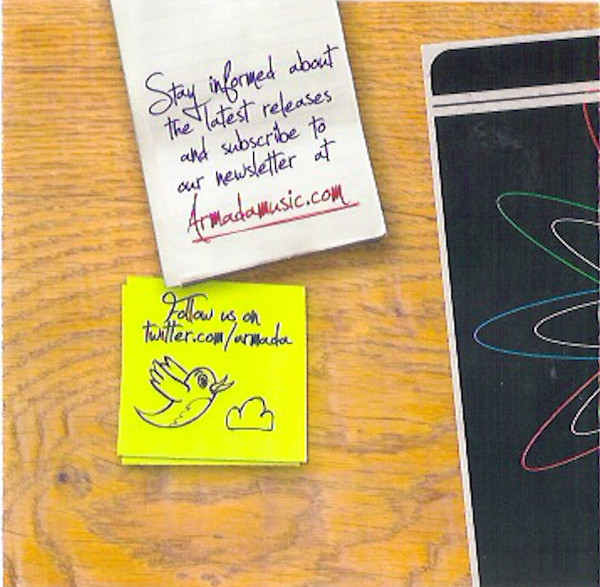 Stay informed about
the latest releases
and subscribe to
our newsletter at
Armadamusic.com
Follow us on
twitter.com/armada